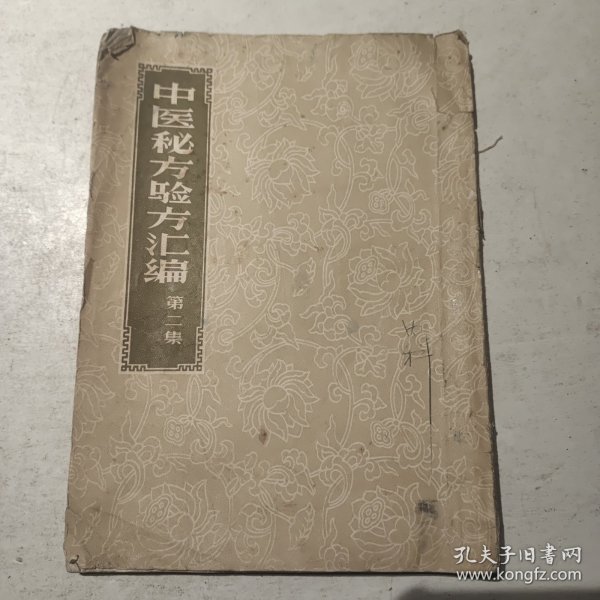 中医秘方验方汇编
第二集
孔夫子旧書网
www.kongfz.com